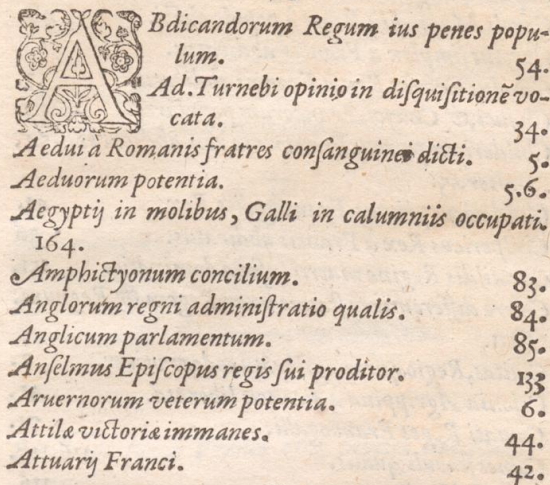 ABdicandorum Regum ius penes popu-
lum. 54.
Ad. Turnebi opinio in diſquiſitionẽ vo-
cata. 34.
Aedui à Romanis fratres conſanguinei dicti. 5.
Aeduorum potentia. 5.6.
Aegyptij in molibus, Galli in calumniis occupati.
164.
Amphictyonum concilium. 83.
Anglorum regni adminiſtratio qualis. 84.
Anglicum parlamentum. 85.
Anſelmus Epiſcopus regis ſui proditor. 133
Aruernorum veterum potentia. 6.
Attilæ victoriæ immanes. 44.
Attuarij Franci. 42.